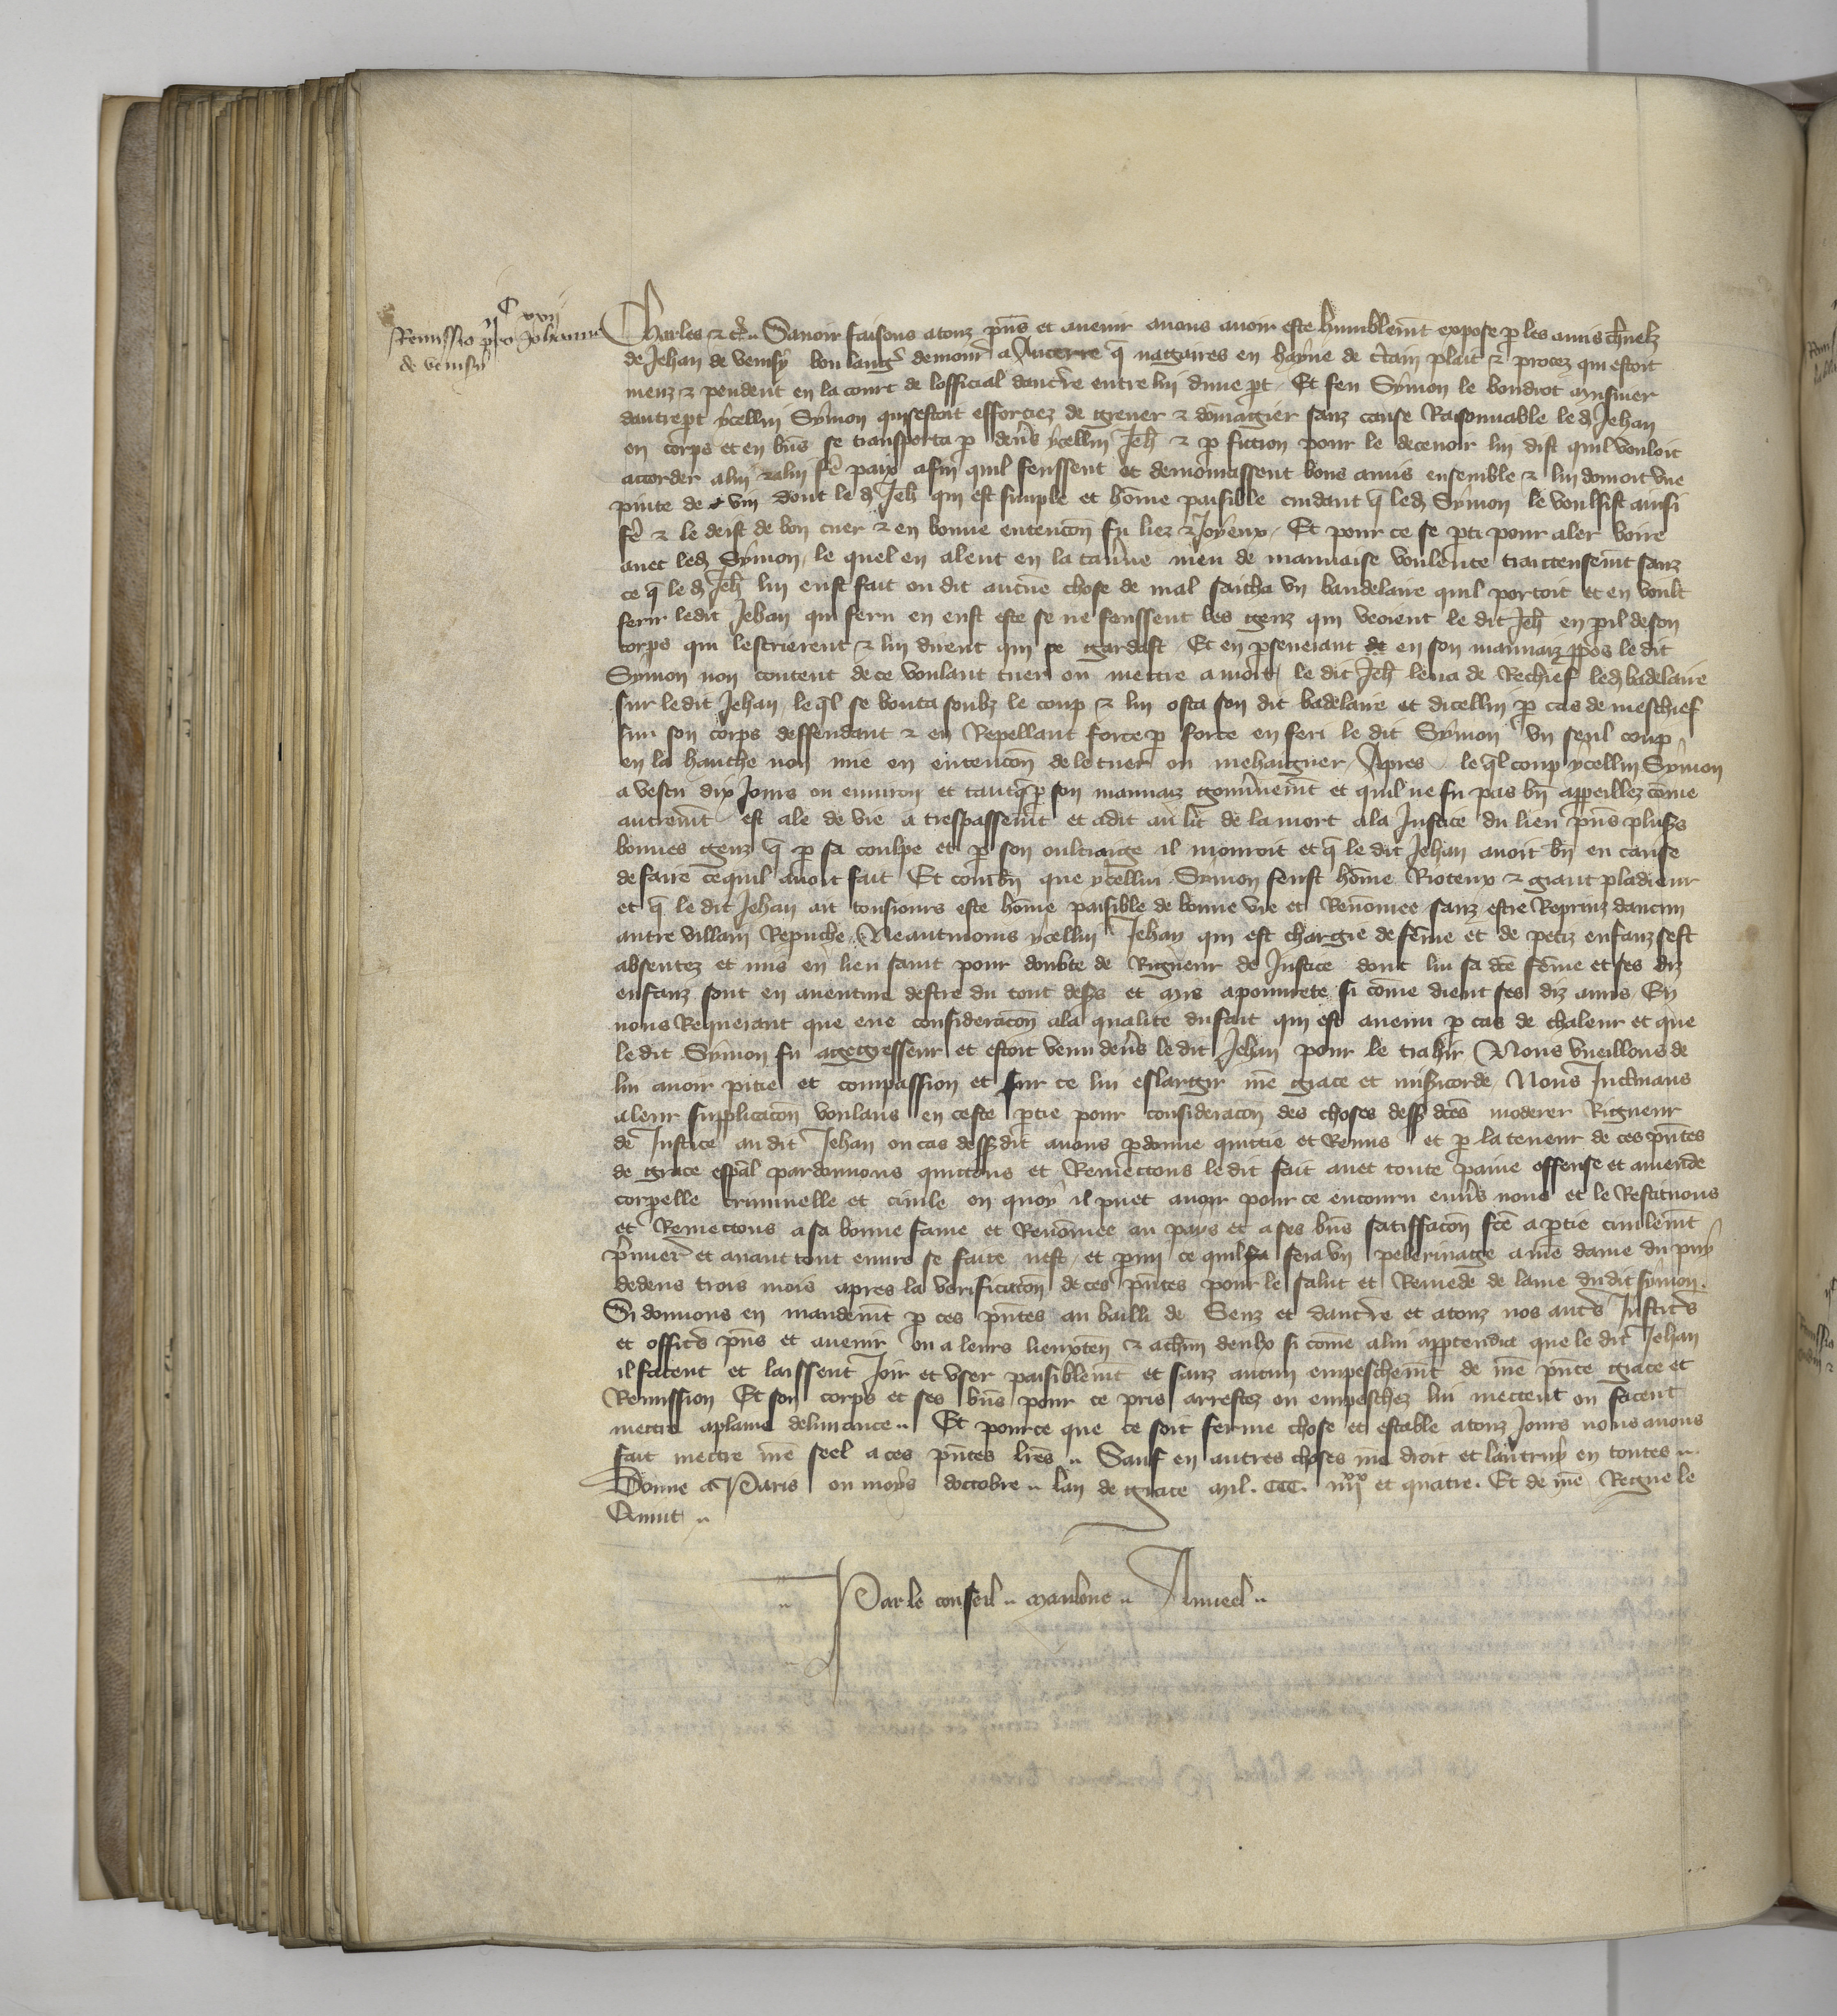 C xxij
Remissio pro Johanne
de venisy
Charles &c. Savoir faisons atouz pns et avenir avons avoir este humblemt expose p les amis chnelz
de Jehan de venisy boulangr demour a Aucerre q naggaires en hayne de ctain plait & procez qui estoit
meuz & pendent en la court de lofficial daucrre entre lui dune pt Et feu Symon le boudiot
dautrept ycellui Symon qui sestoit efforciez de grever & domagier sanz cause Raisonnable led Jehan
en corps et en bns se transporta p devs ycellui Jeh & p fiction pour le decevoir lui dist quil vouloit
accorder alui & alui fe paix afin quil feussent et demourassent bons amis ensemble & lui donroit une
pinte de vin dont le d Jeh qui est simple et home paisible cuidant q led Symon le voulsist ainsi
fe & le deist de bon cuer & en bonne entencon fu liez & Joyeux Et pour ce se pti pour aler boire
avec led Symon le quel en alent en la tavne meu de mauvaise voulente traiteusemt sanz
ce q le d Jeh lui eust fait ou dit aucune chose de mal saicha un baudelaire quil portoit et en voult
ferir ledit Jehan qui feru en eust este se ne feussent les genz qui veoient le dit Jeh en pil de son
corps qui lescrierent & lui dirent qui se gardast Et en pseverant de en son mauvaiz ppos le dit
Symon non content de ce voulant tuer ou mettre a mort le dit Jeh leva de Rechief led badelaire
sur ledit Jehan leql se bouta soubz le coup & lui osta son dit badelaire et dicellui p cas de meschief
son corps deffendant & en Repellant force p force en feri le dit Symon un seul coup
en la hanche non mie en entencon de le tuer ou mehaigner Apres leql coup ycellui Symon
a vescu dix Jours ou environ et tant q p son mauvaiz gouvnemt et quil ne fu pas bn appeillez come
autremt est ale de vie a trespassemt et a dit au lit de la mort a la Justice du lieu pns plusrs
bonnes genz q p sa coulpe et p son oultraige il mouroit et q le dit Jehan avoit bn eu cause
de faire ce quil avoit fait Et combn que ycellui Symon feust home Rioteux & grant pladieur
et q le dit Jehan ait tousiours este home paisible de bonne vie et Renomee sanz estre Reprinz daucun
autre villain Repuche Neantmoins ycellui Jehan qui est chargie de feme et de petiz enfanz sest
absentez et mis en lieu saint pour doubte de Rigueur de Justice dont lui sa dce feme et ses diz
enfanz sont en aventure destre du tout desrs et mis a pourete si come dient ses diz amis En
nous Requerant que eue consideracon a la qualite du fait qui est avenu p cas de chaleur et que
le dit Symon fu aggresseur et estoit venu devs le dit Jehan pour le trahir Nous vueillons de
lui avoir pitie et compassion et sur ce lui eslargir nre grace et misicorde Nous Inclinans
a leur supplicacon voulans en ceste ptie pour consideracon des choses dessus dces moderer Rigueur
de Justice au dit Jehan ou cas dessus dit avons pdonne quittie et Remis et p la teneur de ces pntes
de grace espal pardonnons quictons et Remectons le dit fait avec toute paine offense et amende
corpelle criminelle et civile en quoy il puet avoir pour ce encouru envs nous et le Restituons
et Remectons a sa bonne fame et Renomee au pays et a ses bns satiffacon fce a ptie civilemt
pmier et avant tout euvre se faite nest et pmi ce quil fera un pelerinage a nre dame du puy
dedens trois mois apres la verificacon de ces pntes pour le salut et Remede de lame dudit symon.
Si donnons en mandemt p ces pntes au bailli de Senz et daucrre et a touz nos autrs Justicrs
et officrs pns et avenir ou a leurs lieuxten & a chun deulx si come a lui apptendra que le dit Jehan
il facent et laissent Joir et user paisiblemt et sanz aucun empeschemt de nre pnte grace et
Remission Et son corps et ses bns pour ce pris arrestez ou empeschez lui mectent ou facent
mectre a plaine delivrance Et pour ce que ce soit ferme chose et estable a touz Jours nous avons
fait mectre nre seel a ces pntes lres Sauf en autres choses nre droit et lautruy en toutes
Donne a Paris ou moys doctobre lan de grace mil. CCC. iiijxx et quatre. Et de nre Regne le
Quint
Par le conseil maulone Anneel